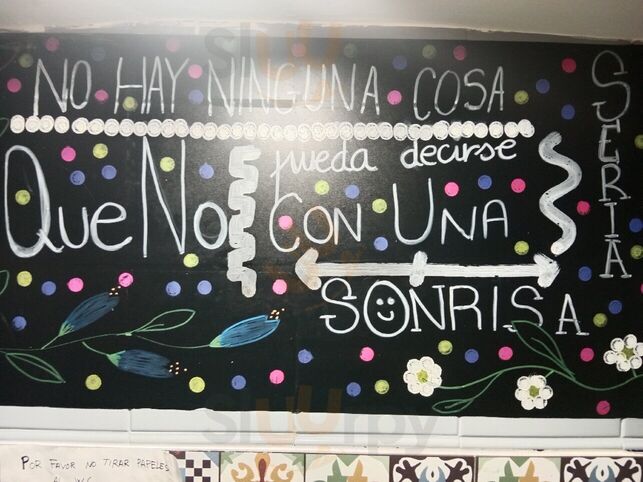 NO HAY NINGUNA COSA
SERIA
QUE NO
pueda decirse
CON UNA
SONRISA
POR FAVOR NO TIRAR PAPELES
AL WC
Sluurpy